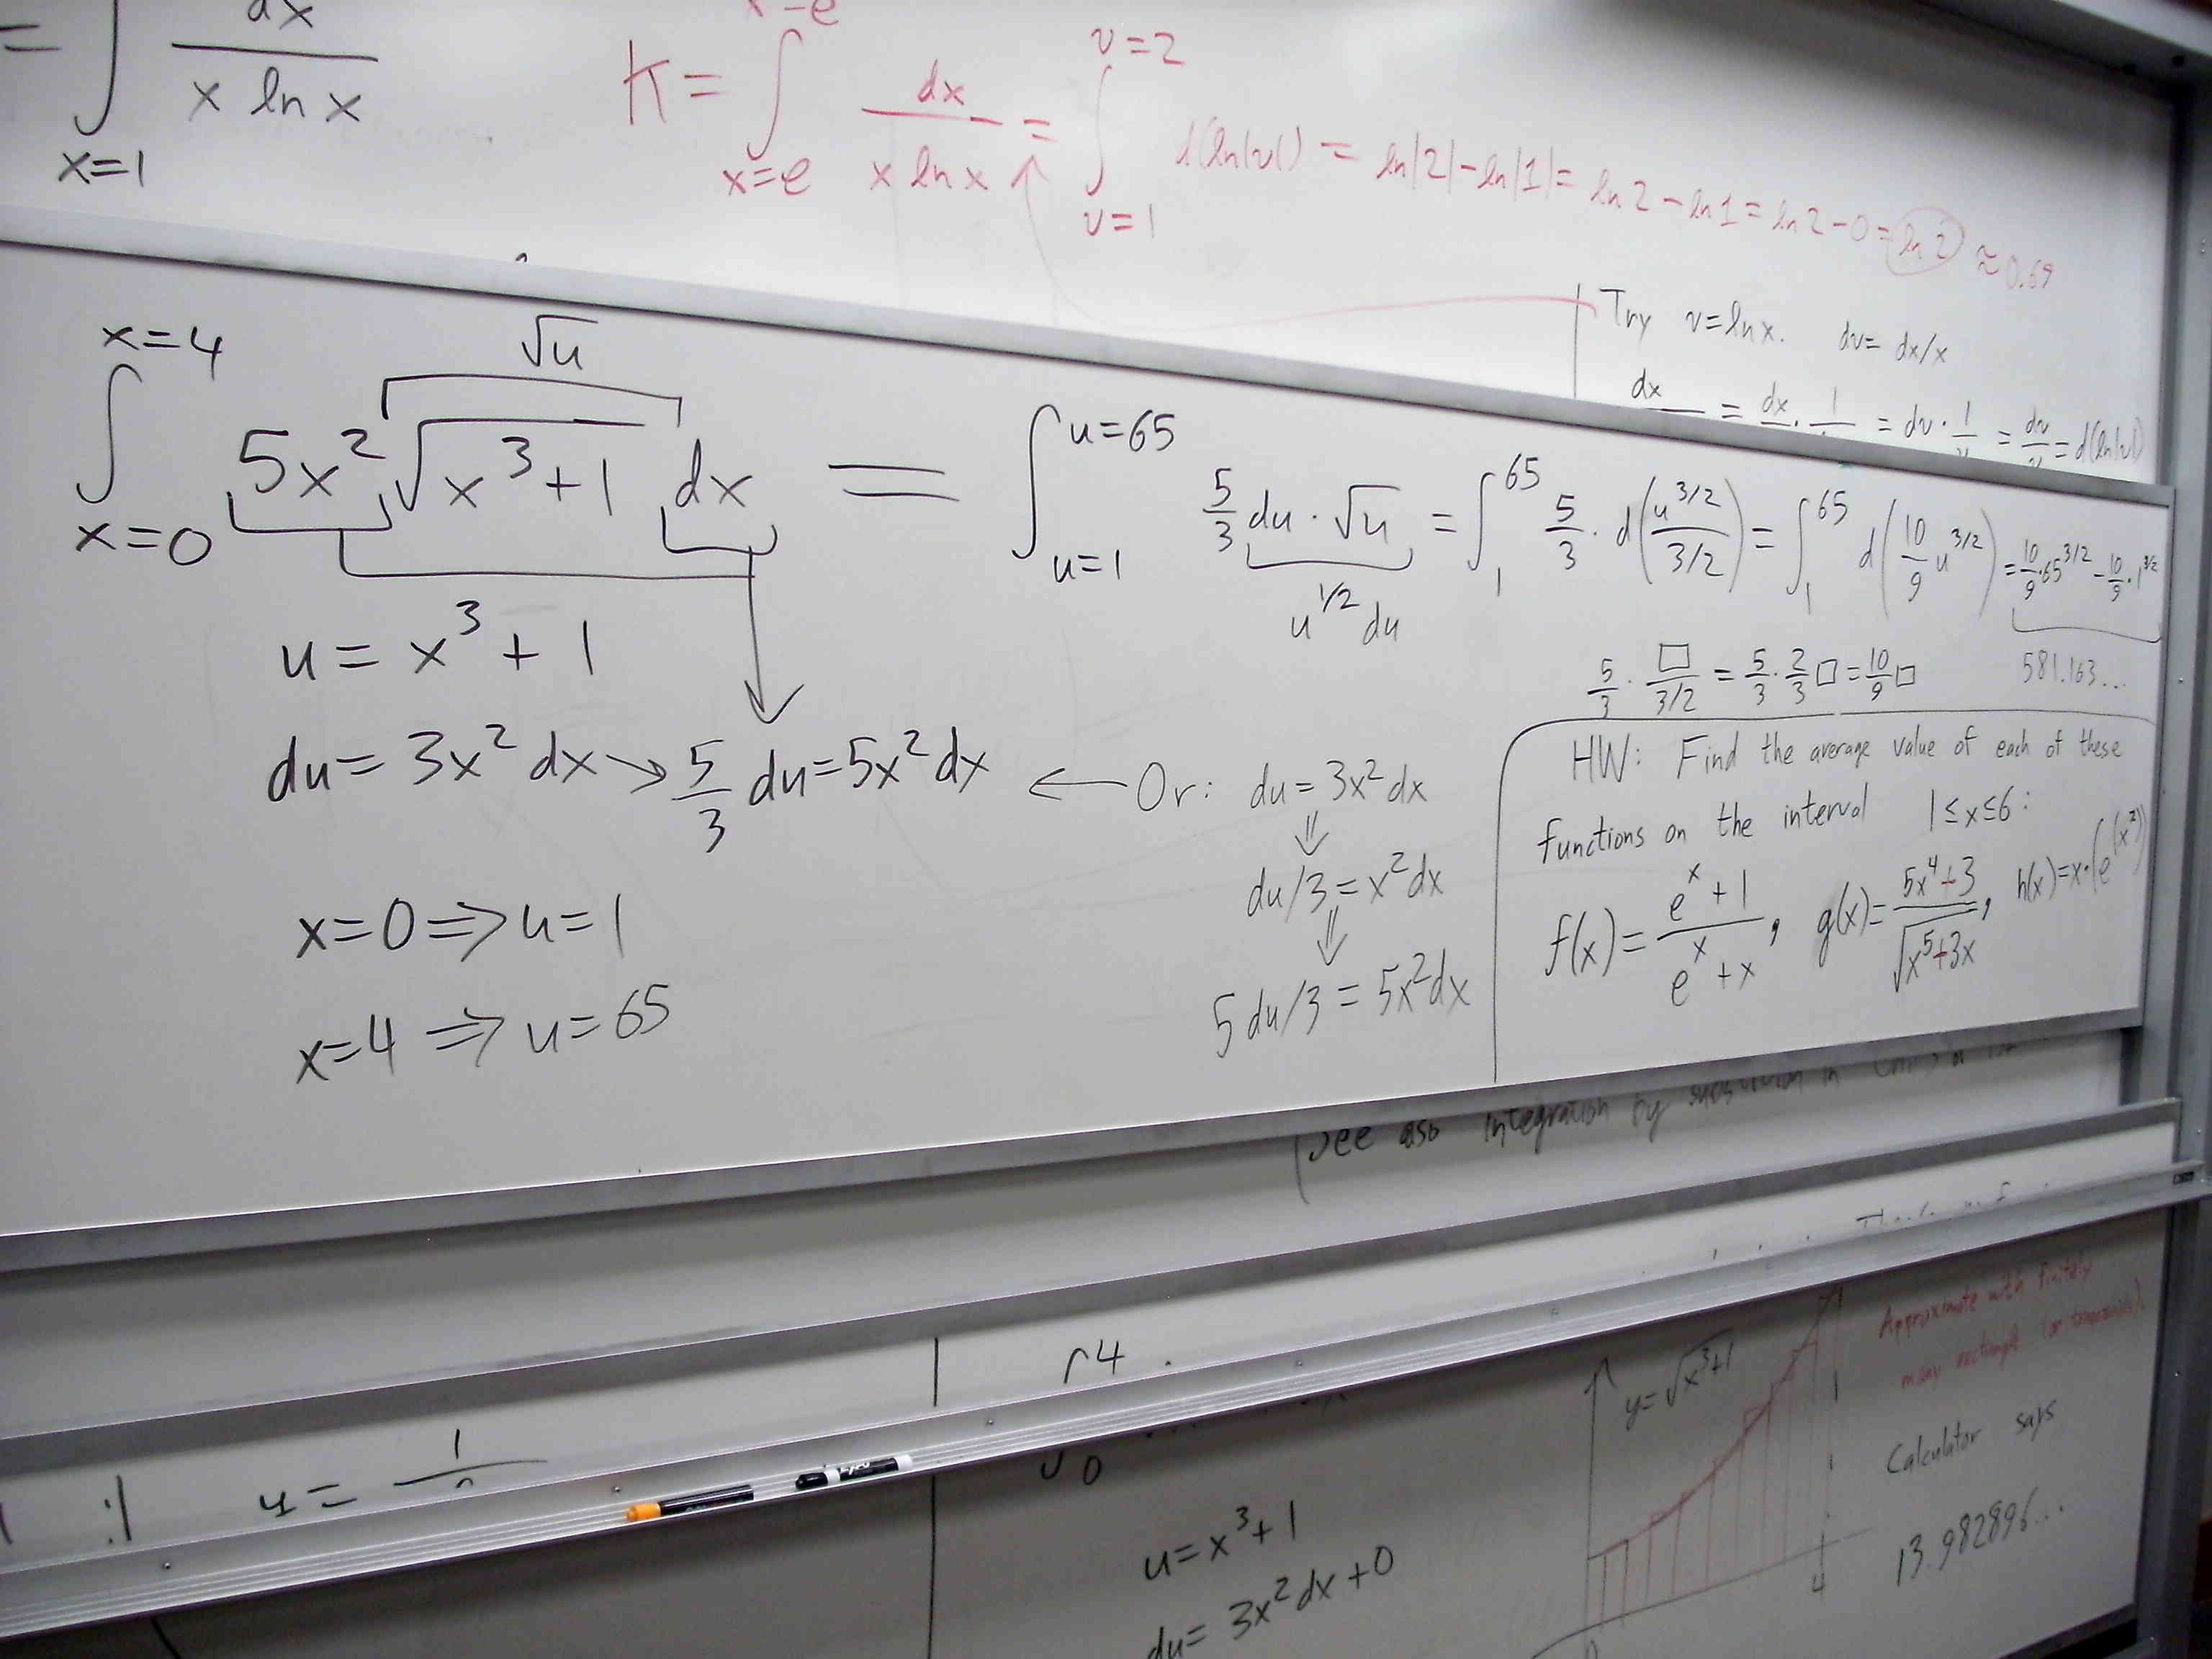 = ∫ dx / (x ln x)
x=1
K = ∫ dx / (x ln x) = ∫ d(ln|v|) = ln|2| - ln|1| = ln 2 - ln 1 = ln 2 - 0 = ln 2 ≈ 0.69
x=e
v=2
v=1
Try v = ln x. dv = dx/x
dx = dx · 1 = dv · 1/v = dv/v = d(ln|v|)
x=4
√u
∫ 5x² √(x³+1) dx = ∫ 5/3 du · √u = ∫ 5/3 · d(u^(3/2) / (3/2)) = ∫ d(10/9 u^(3/2)) = 10/9 · 65^(3/2) - 10/9 · 1^(3/2)
x=0
u=65
u=1
65
1
65
1
u^(1/2) du
581.163...
5/3 · □/(3/2) = 5/3 · 2/3 □ = 10/9 □
u = x³ + 1
du = 3x² dx → 5/3 du = 5x² dx ← Or: du = 3x² dx
⇓
du/3 = x² dx
⇓
5 du/3 = 5x² dx
x=0 ⇒ u=1
x=4 ⇒ u=65
HW: Find the average value of each of these
functions on the interval 1 ≤ x ≤ 6:
f(x) = (e^x + 1) / (e^x + x), g(x) = (5x⁴+3) / √(x⁵+3x), h(x) = x·(e^(x²))
See also integration by substitution in
u = 1
4
0
u = x³ + 1
du = 3x² dx + 0
y = √(x³+1)
4
Approximate with finitely
many rectangle (or trapezoids).
Calculator says
13.982896...